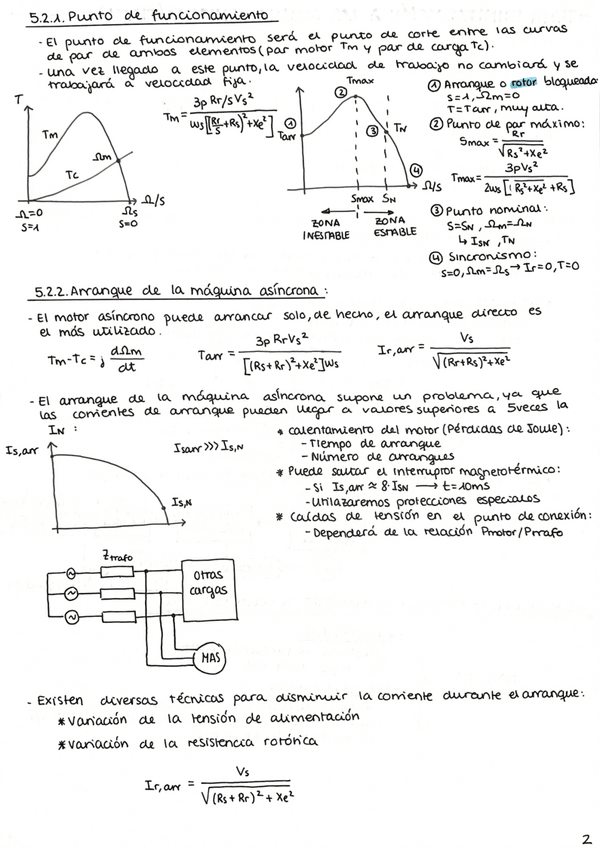 5.2.1. Punto de funcionamiento
- El punto de funcionamiento será el punto de corte entre las curvas
de par de ambos elementos (par motor Tm y par de carga Tc).
- Una vez llegado a este punto, la velocidad de trabajo no cambiará y se
trabajará a velocidad fija.
T
Tm
Ωm
Tc
Ω/s
Ω=0
S=1
Ωs
S=0
Tm = 3p Rr/s Vs² / ws[[Rr/s + Rs]² + Xe²]
Tmax
①
Tarr
②
③
TN
④
Ω/s
Smax
SN
ZONA
INESTABLE
ZONA
ESTABLE
① Arranque o rotor bloqueado:
S=1, Ωm=0
T=Tarr, muy alta.
② Punto de par máximo:
Smax = Rr / √Rs²+Xe²
Tmax = 3pVs² / 2ws[√Rs²+Xe² + Rs]
③ Punto nominal:
S=SN, Ωm=ΩN
↳ ISN, TN
④ Sincronismo:
S=0, Ωm=Ωs → Ir=0, T=0
5.2.2. Arranque de la máquina asíncrona:
- El motor asíncrono puede arrancar solo, de hecho, el arranque directo es
el más utilizado.
Tm-Tc = j dΩm/dt
Tarr = 3p Rr Vs² / [(Rs+Rr)²+Xe²]ws
Ir,arr = Vs / √(Rr+Rs)²+Xe²
- El arranque de la máquina asíncrona supone un problema, ya que
las corrientes de arranque pueden llegar a valores superiores a 5 veces la
IN :
Is,arr
Isarr >>> Is,N
Is,N
* Calentamiento del motor (Pérdidas de Joule):
- Tiempo de arranque
- Número de arranques
* Puede saltar el interruptor magnetotérmico:
- Si Is,arr ≈ 8·ISN → t=10ms
- Utilazaremos protecciones especiales
* Caídas de tensión en el punto de conexión:
- Dependerá de la relación Pmotor/Prrafo
Ztrafo
Otras
cargas
MAS
- Existen diversas técnicas para disminuir la corriente durante el arranque:
* Variación de la tensión de alimentación
* Variación de la resistencia rotórica
Ir,arr = Vs / √(Rs+Rr)² + Xe²
2